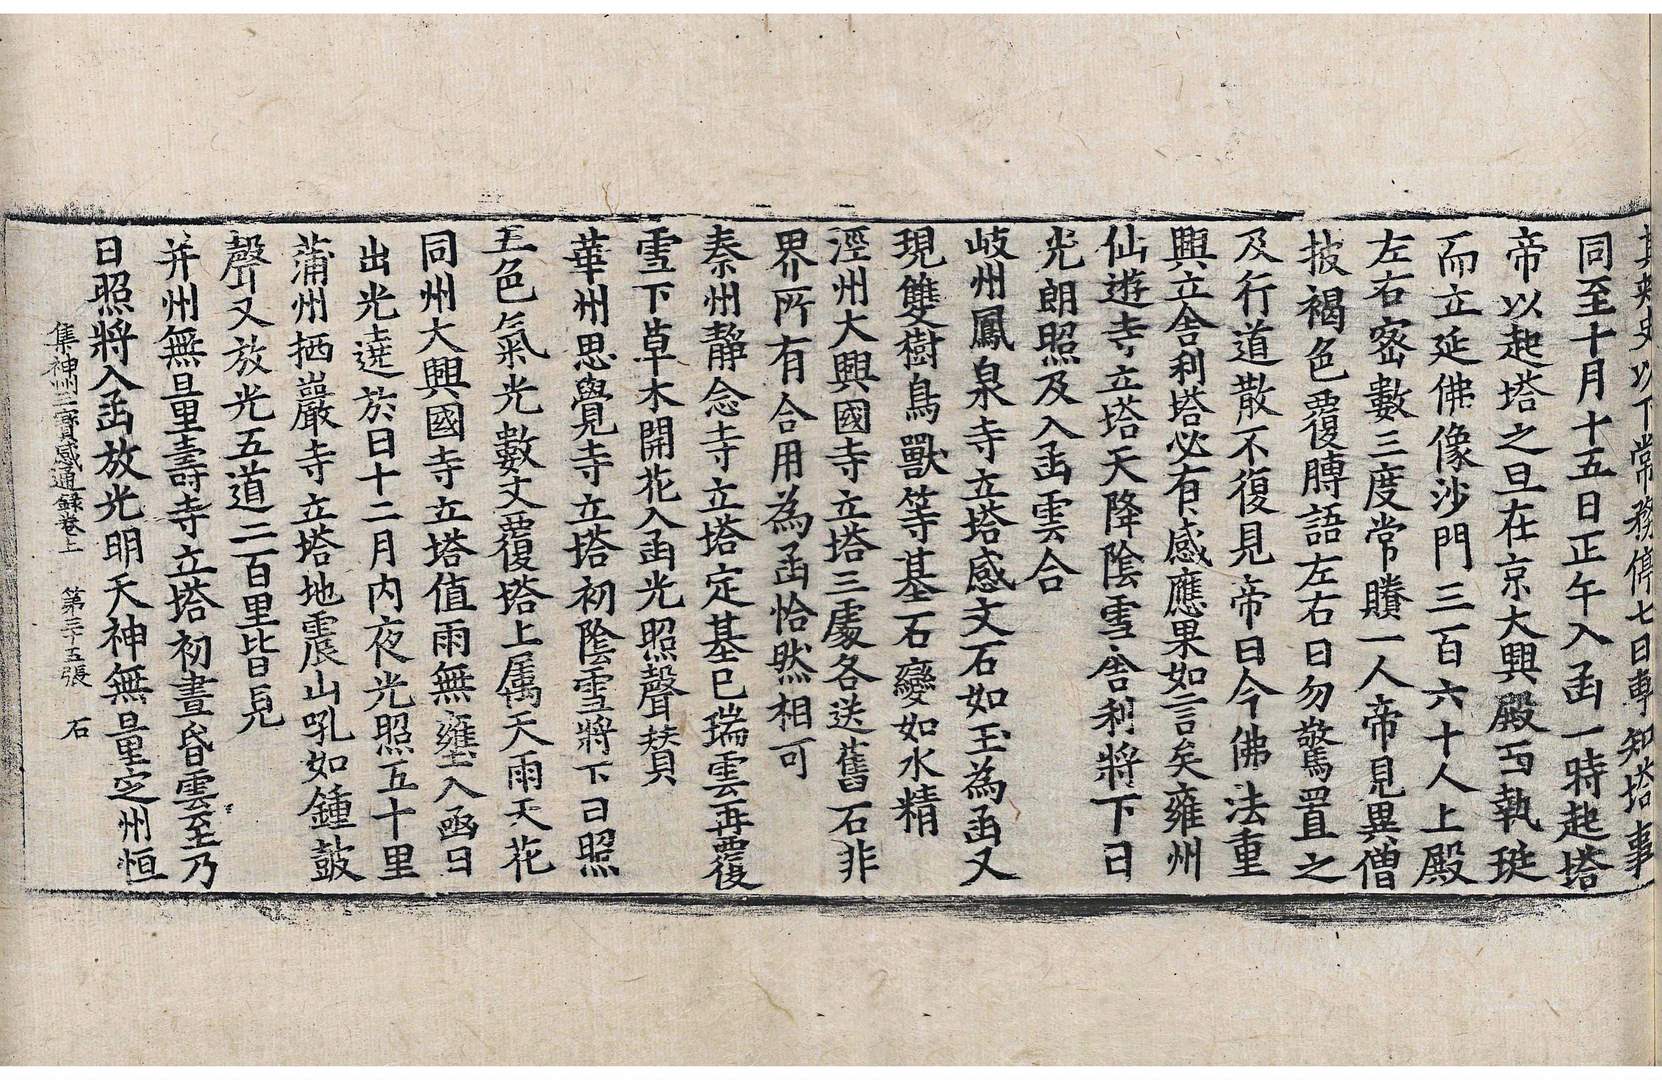 其刺史以下常務停七日專知塔事
同至十月十五日正午入函一時起塔
帝以起塔之旦在京大興殿西執珽
而立延佛像沙門三百六十人上殿
左右密數三度常賸一人帝見異僧
披褐色覆膊語左右曰勿驚置之
及行道散不復見帝曰今佛法重
興立舍利塔必有感應果如言矣雍州
仙遊寺立塔天降陰雪舍利將下日
光朗照及入函雲合
岐州鳳泉寺立塔感文石如玉為函又
現雙樹鳥獸等基石變如水精
涇州大興國寺立塔三處各送舊石非
界所有合用為函恰然相可
秦州靜念寺立塔定基已瑞雲再覆
雪下草木開花入函光照聲贊
華州思覺寺立塔初陰雪將下日照
五色氣光數丈覆塔上属天雨天花
同州大興國寺立塔值雨無壅入函日
出光遶於日十二月內夜光照五十里
蒲州栖巖寺立塔地震山吼如鍾鼓
聲又放光五道二百里皆見
并州無量壽寺立塔初晝昏雲至乃
日照將入函放光明天神無量定州恒
集神州三寶感通録卷上 第三十五張 石